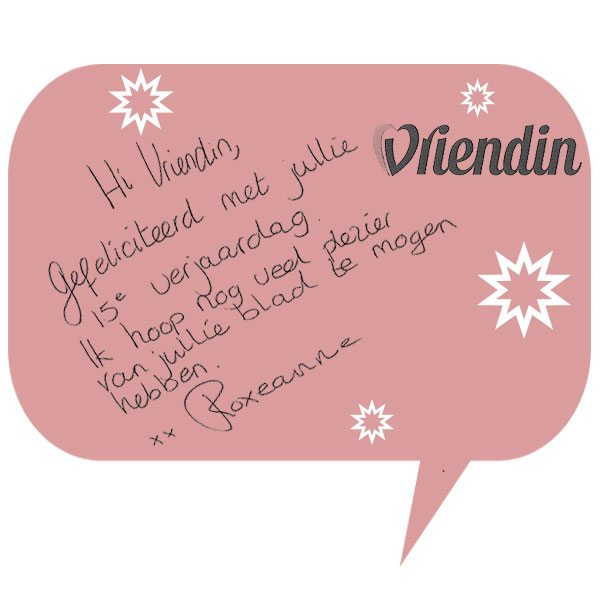 Vriendin
Hi Vriendin,
gefeliciteerd met jullie
15e verjaardag.
Ik hoop nog veel plezier
van jullie blad te mogen
hebben.
xx Roxeanne